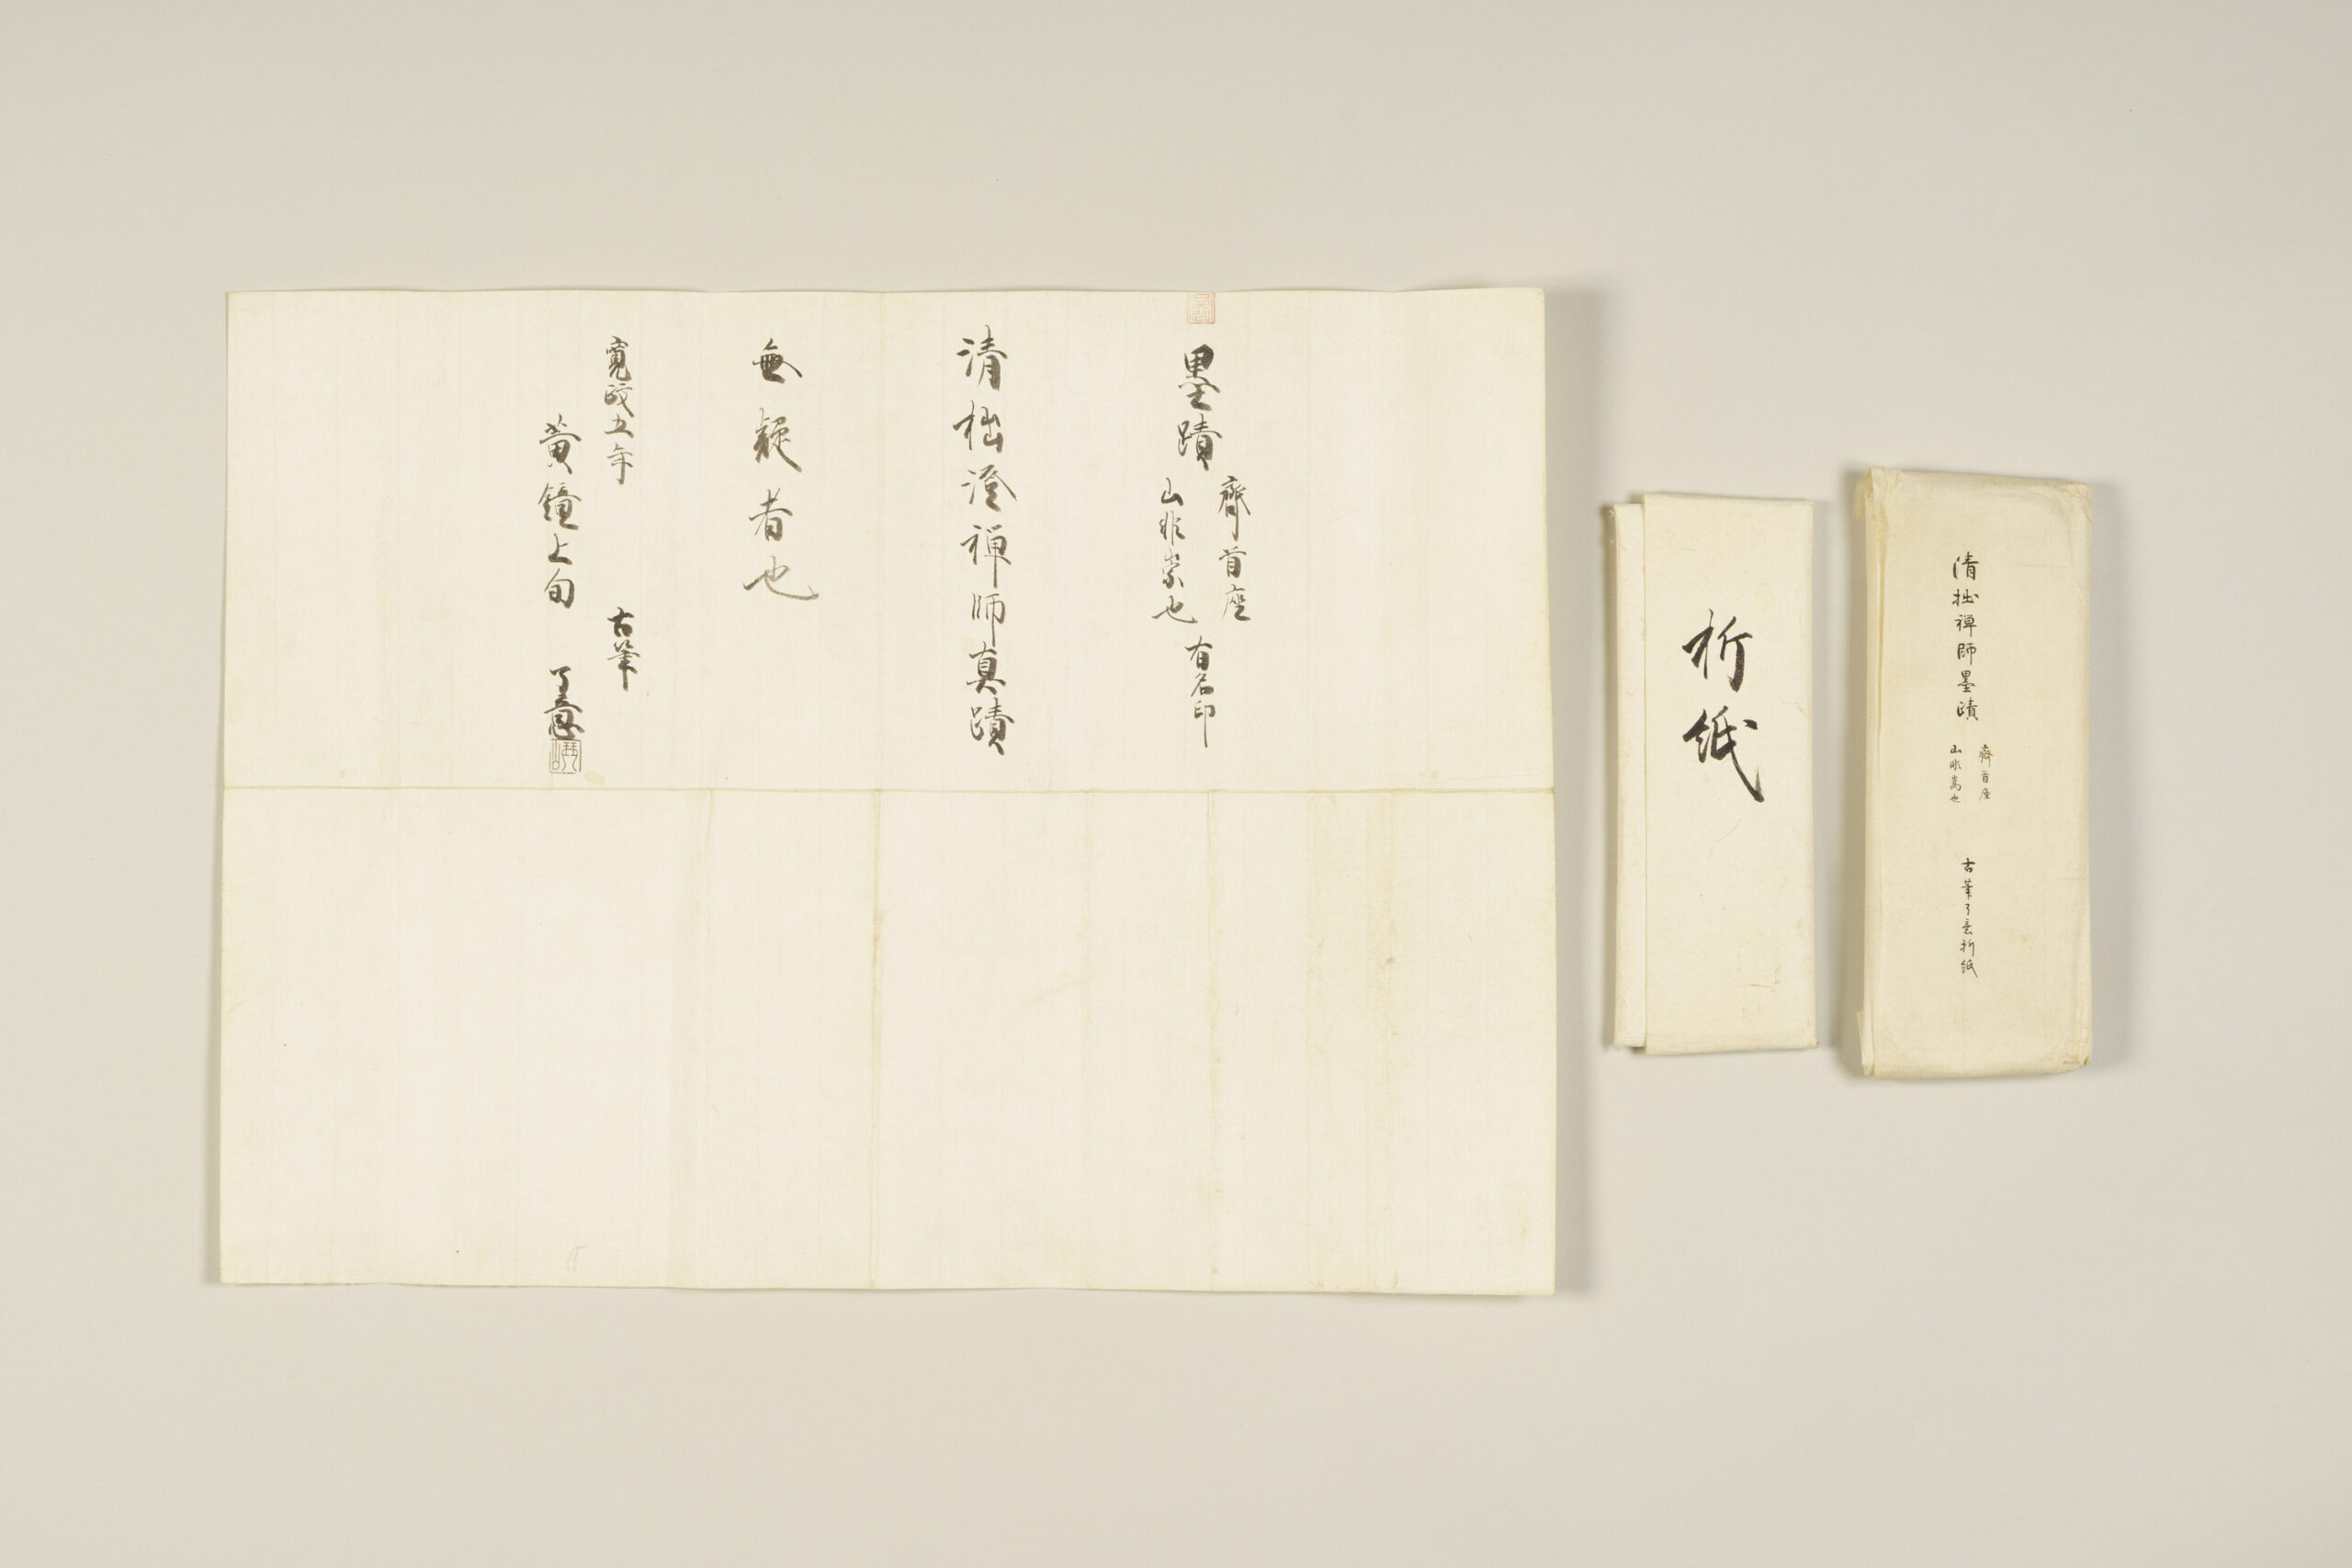 墨蹟
齊首座
山非崇也
有名印
清拙澄禅師真蹟
無疑者也
寛政五年
黄鐘上旬
古筆
了意
折紙
清拙禅師墨蹟
齊首座
山非嵩也
古筆了意折紙